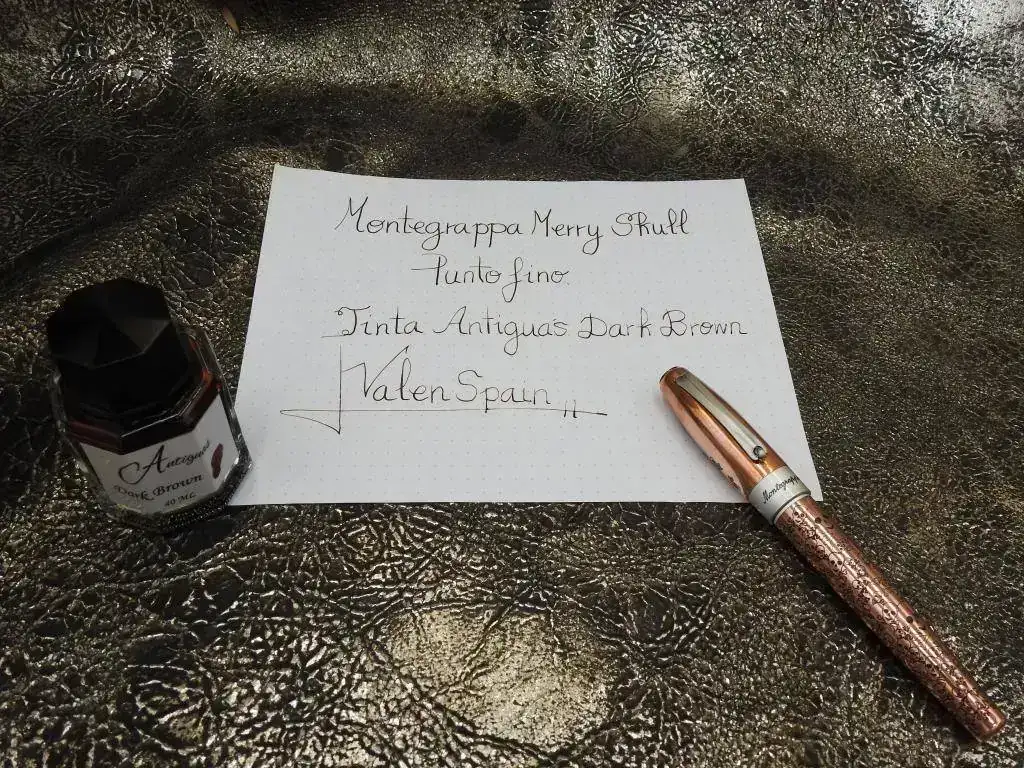 Montegrappa Merry Skull
Punto fino.
Tinta Antiguas Dark Brown
Valen Spain
Antiguas
Dark Brown
40 ML
Montegrappa